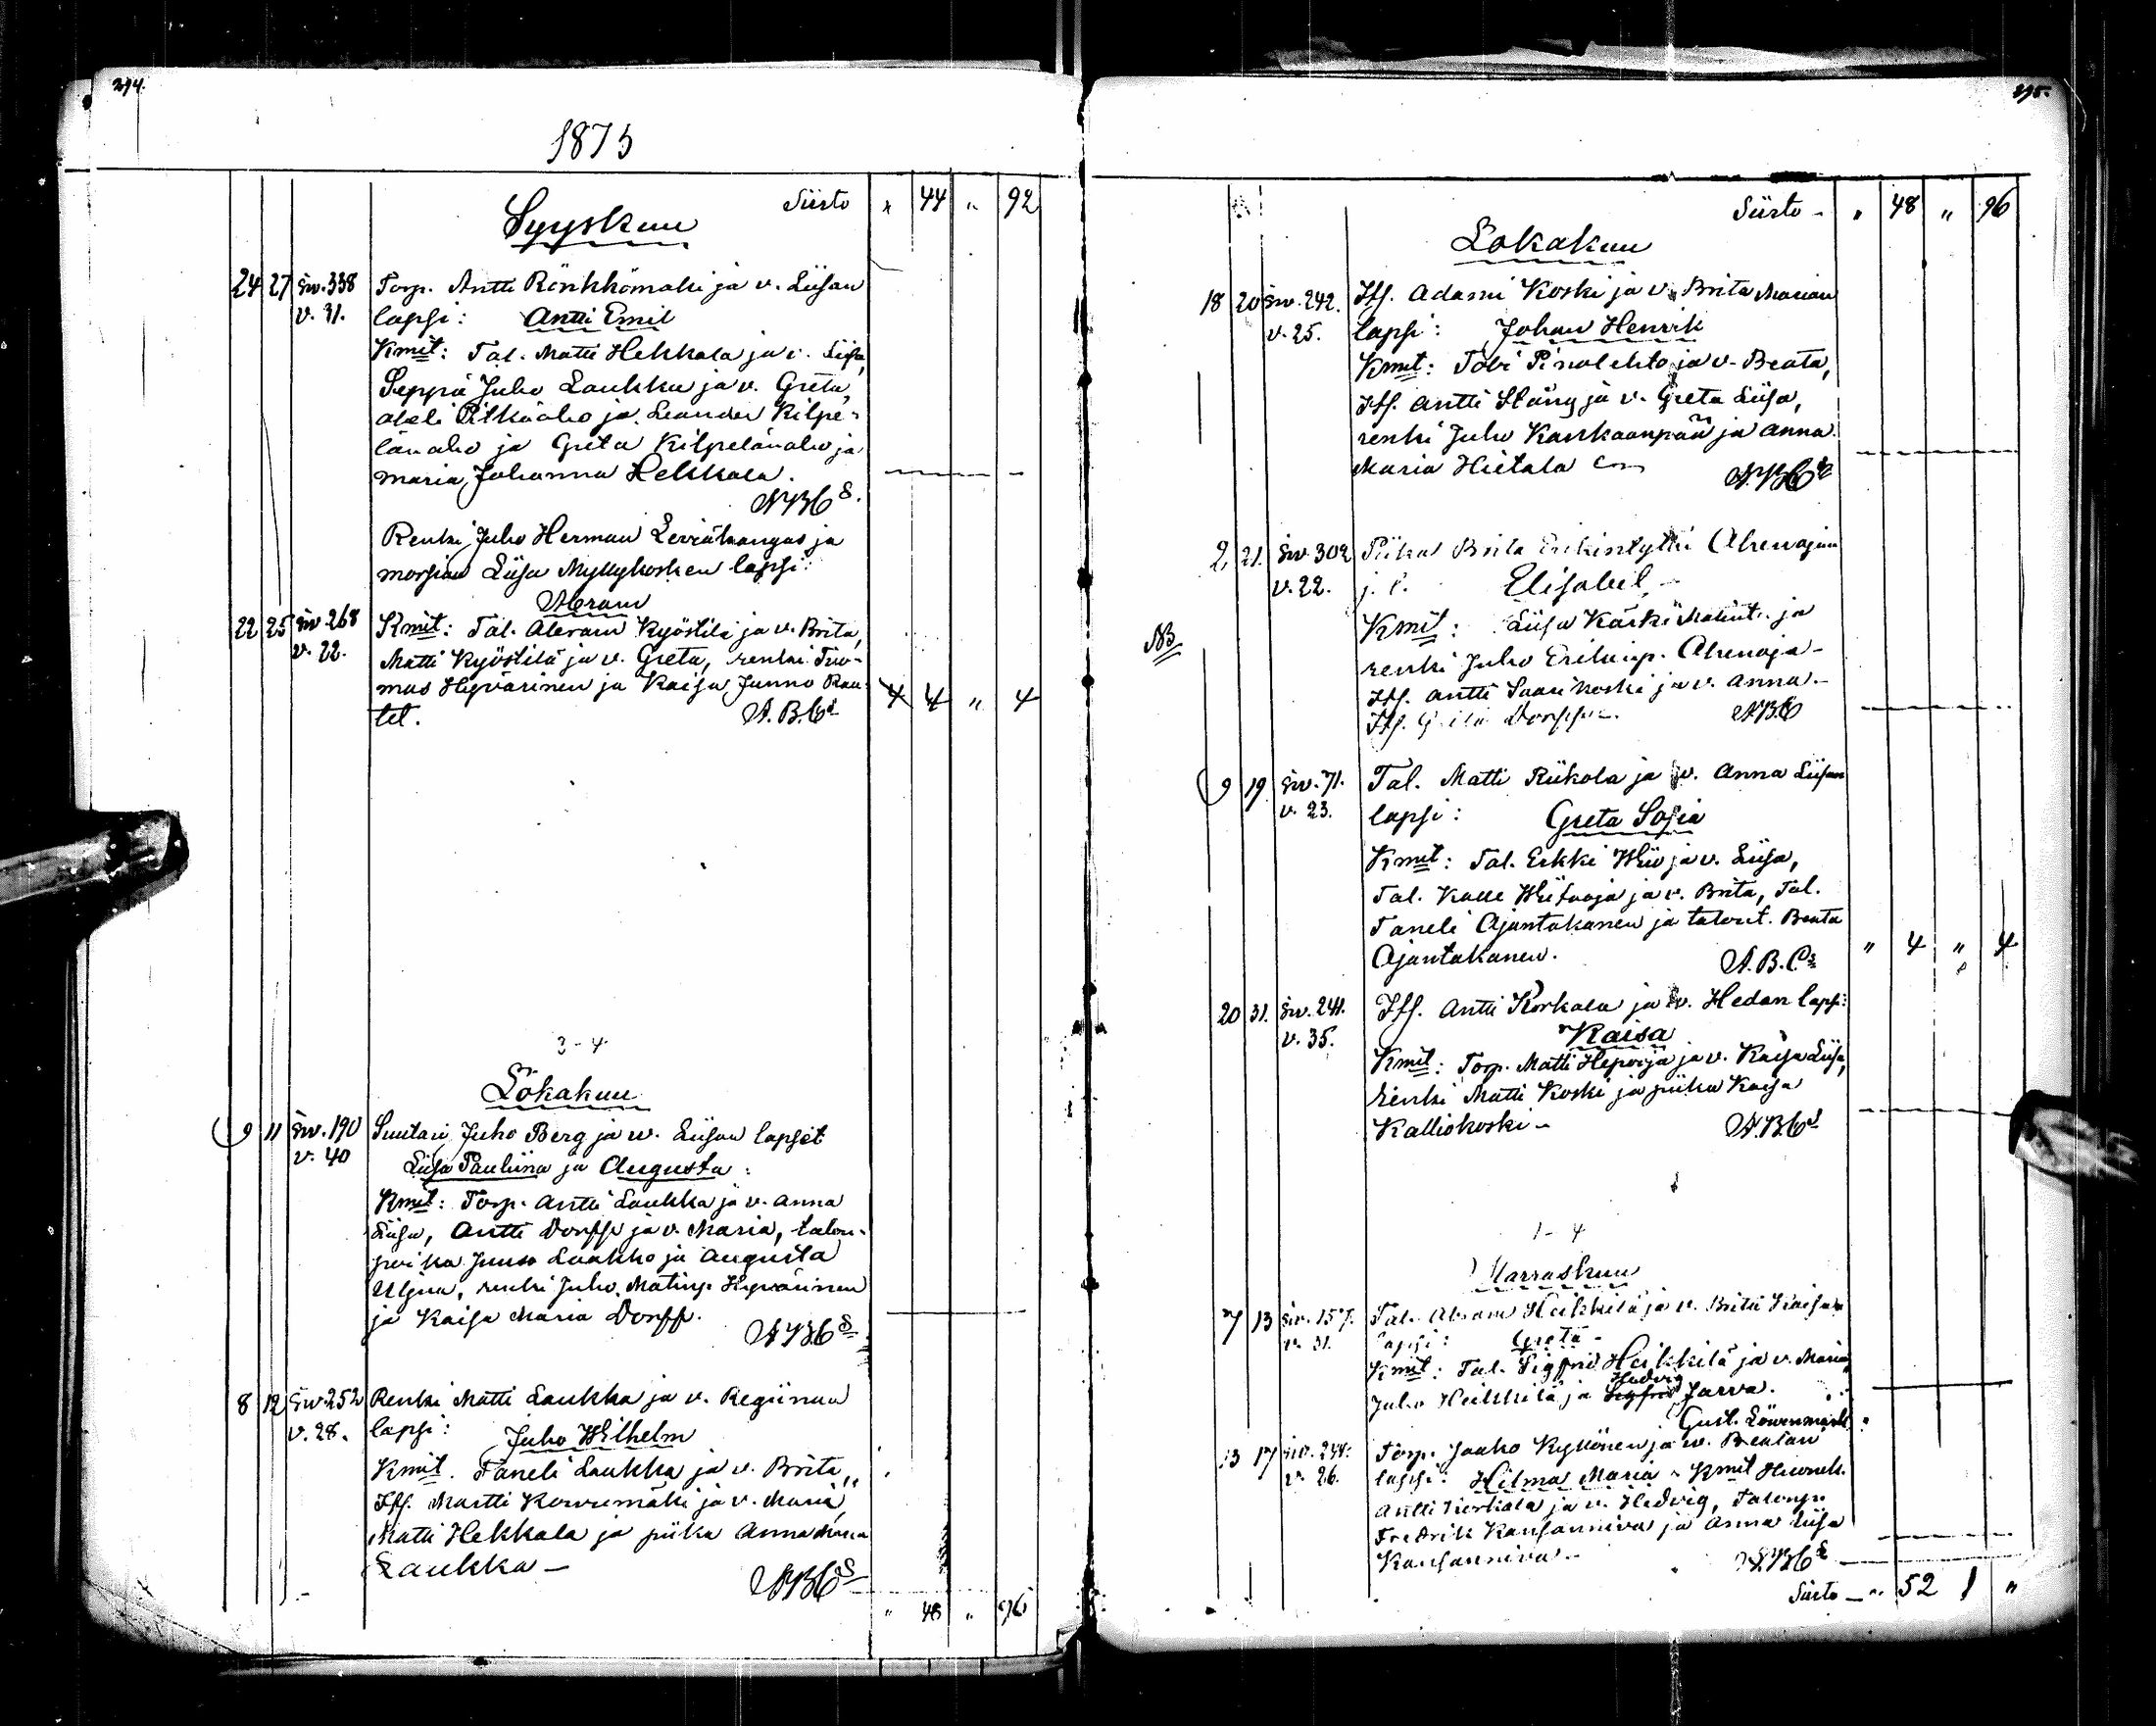 294.
1873
Siirto " 44 " 92
Syyskuu
24 27 Siv. 338 Torp. Antti Rönkkömäki ja v. Liisan
v. 31. lapsi: Antti Emil
Kmit: Tal. Matti Hekkala ja v. Liisa,
Seppä Juho Laukka ja v. Greta,
Abeli Pitkäaho ja Leander Kilpe-
länaho ja Greta Kilpelänaho ja
Maria Johanna Hekkala.
Renki Juho Herman Leviäkangas ja
morsian Liisa Myllykosken lapsi:
Abram
22 25 Siv. 268 Kmit: Tal. Abram Kyöstilä ja v. Brita,
v. 22. Matti Kyöstilä ja v. Greta, renki Tuo-
mas Hyvärinen ja Kaisa Junno Rau-
tel. A. B. Cs 4 4 " 4
3 - 4
Lokakuu
9 11 Siv. 190 Suutari Juho Berg ja v. Liisan lapset
v. 40 Liisa Pauliina ja Augusta:
Kmit: Torp. Antti Laukka ja v. Anna
Liisa, Antti Dorff ja v. Maria, talon-
poika Juuso Laukko ja Augusta
renki Juho Matinp. Hyvärinen
ja Kaisa Maria Dorff.
8 12 Siv. 252 Renki Matti Laukka ja v. Regiinan
v. 28. lapsi: Juho Wilhelm
Kmit. Taneli Laukka ja v. Brita,
Itf. Martti Korvemäki ja v. Maria,
Matti Hekkala ja piika Anna Maria
Laukka -
" 48 " 96
295.
Siirto - " 48 " 96
Lokakuu
18 20 Siv. 242. Itf. Adami Koski ja v. Brita Marian
v. 25. lapsi: Johan Henrik
Kmit: Tobi Pinolehto ja v. Beata,
Itf. Antti Stång ja v. Greta Liisa,
renki Juho Kankaanpää ja Anna
Maria Hietala
2, 21. Siv. 302 Piika Brita Erkintytär Ahenojan
v. 22. j. l. Elisabet -
NB
Kmit: Liisa Kärki Matint. ja
renki Juho Erkinp. Ahenoja -
Itf. Antti Saarikoski ja v. Anna. -
Itf.
9 19 Siv. 71. Tal. Matti Riikola ja v. Anna Liisan
v. 23. lapsi: Greta Sofia
Kmit: Tal. Erkki Wiio ja v. Liisa,
Tal. Kalle Wiitaoja ja v. Brita, Tal.
Taneli Ajantakanen ja talont. Beata
Ajantakanen. A. B. Cs " 4 " 4
20 31. Siv. 241. Itf. Antti Korkala ja v. Hedan lapsi:
v. 35. Kaisa
Kmit: Torp. Matti Hepooja ja v. Kaisa Liisa,
renki Matti Koski ja piika Kaisa
Kalliokoski -
1 - 4
Marraskuu
7 13 Siv. 157. Tal. Abram Heikkilä ja v. Brita Kaisan
v. 31. lapsi: Greta -
Kmit: Tal. Sigfrid Heikkilä ja v. Maria,
Hedvig
Juho Heikkilä ja Sigfrid Jarva.
Gust. Löwenmark
13 17 Siv. 244. Torp. Jaako Kyllönen ja v. Beatan
v. 26. lapsi: Hilma Maria - Kmit
Antti Korkala ja v. Hedvig, Talonp.
Fredrik Kansanniva ja Anna Liisa
Kansanniva. -
Siirto - " 52 1 "